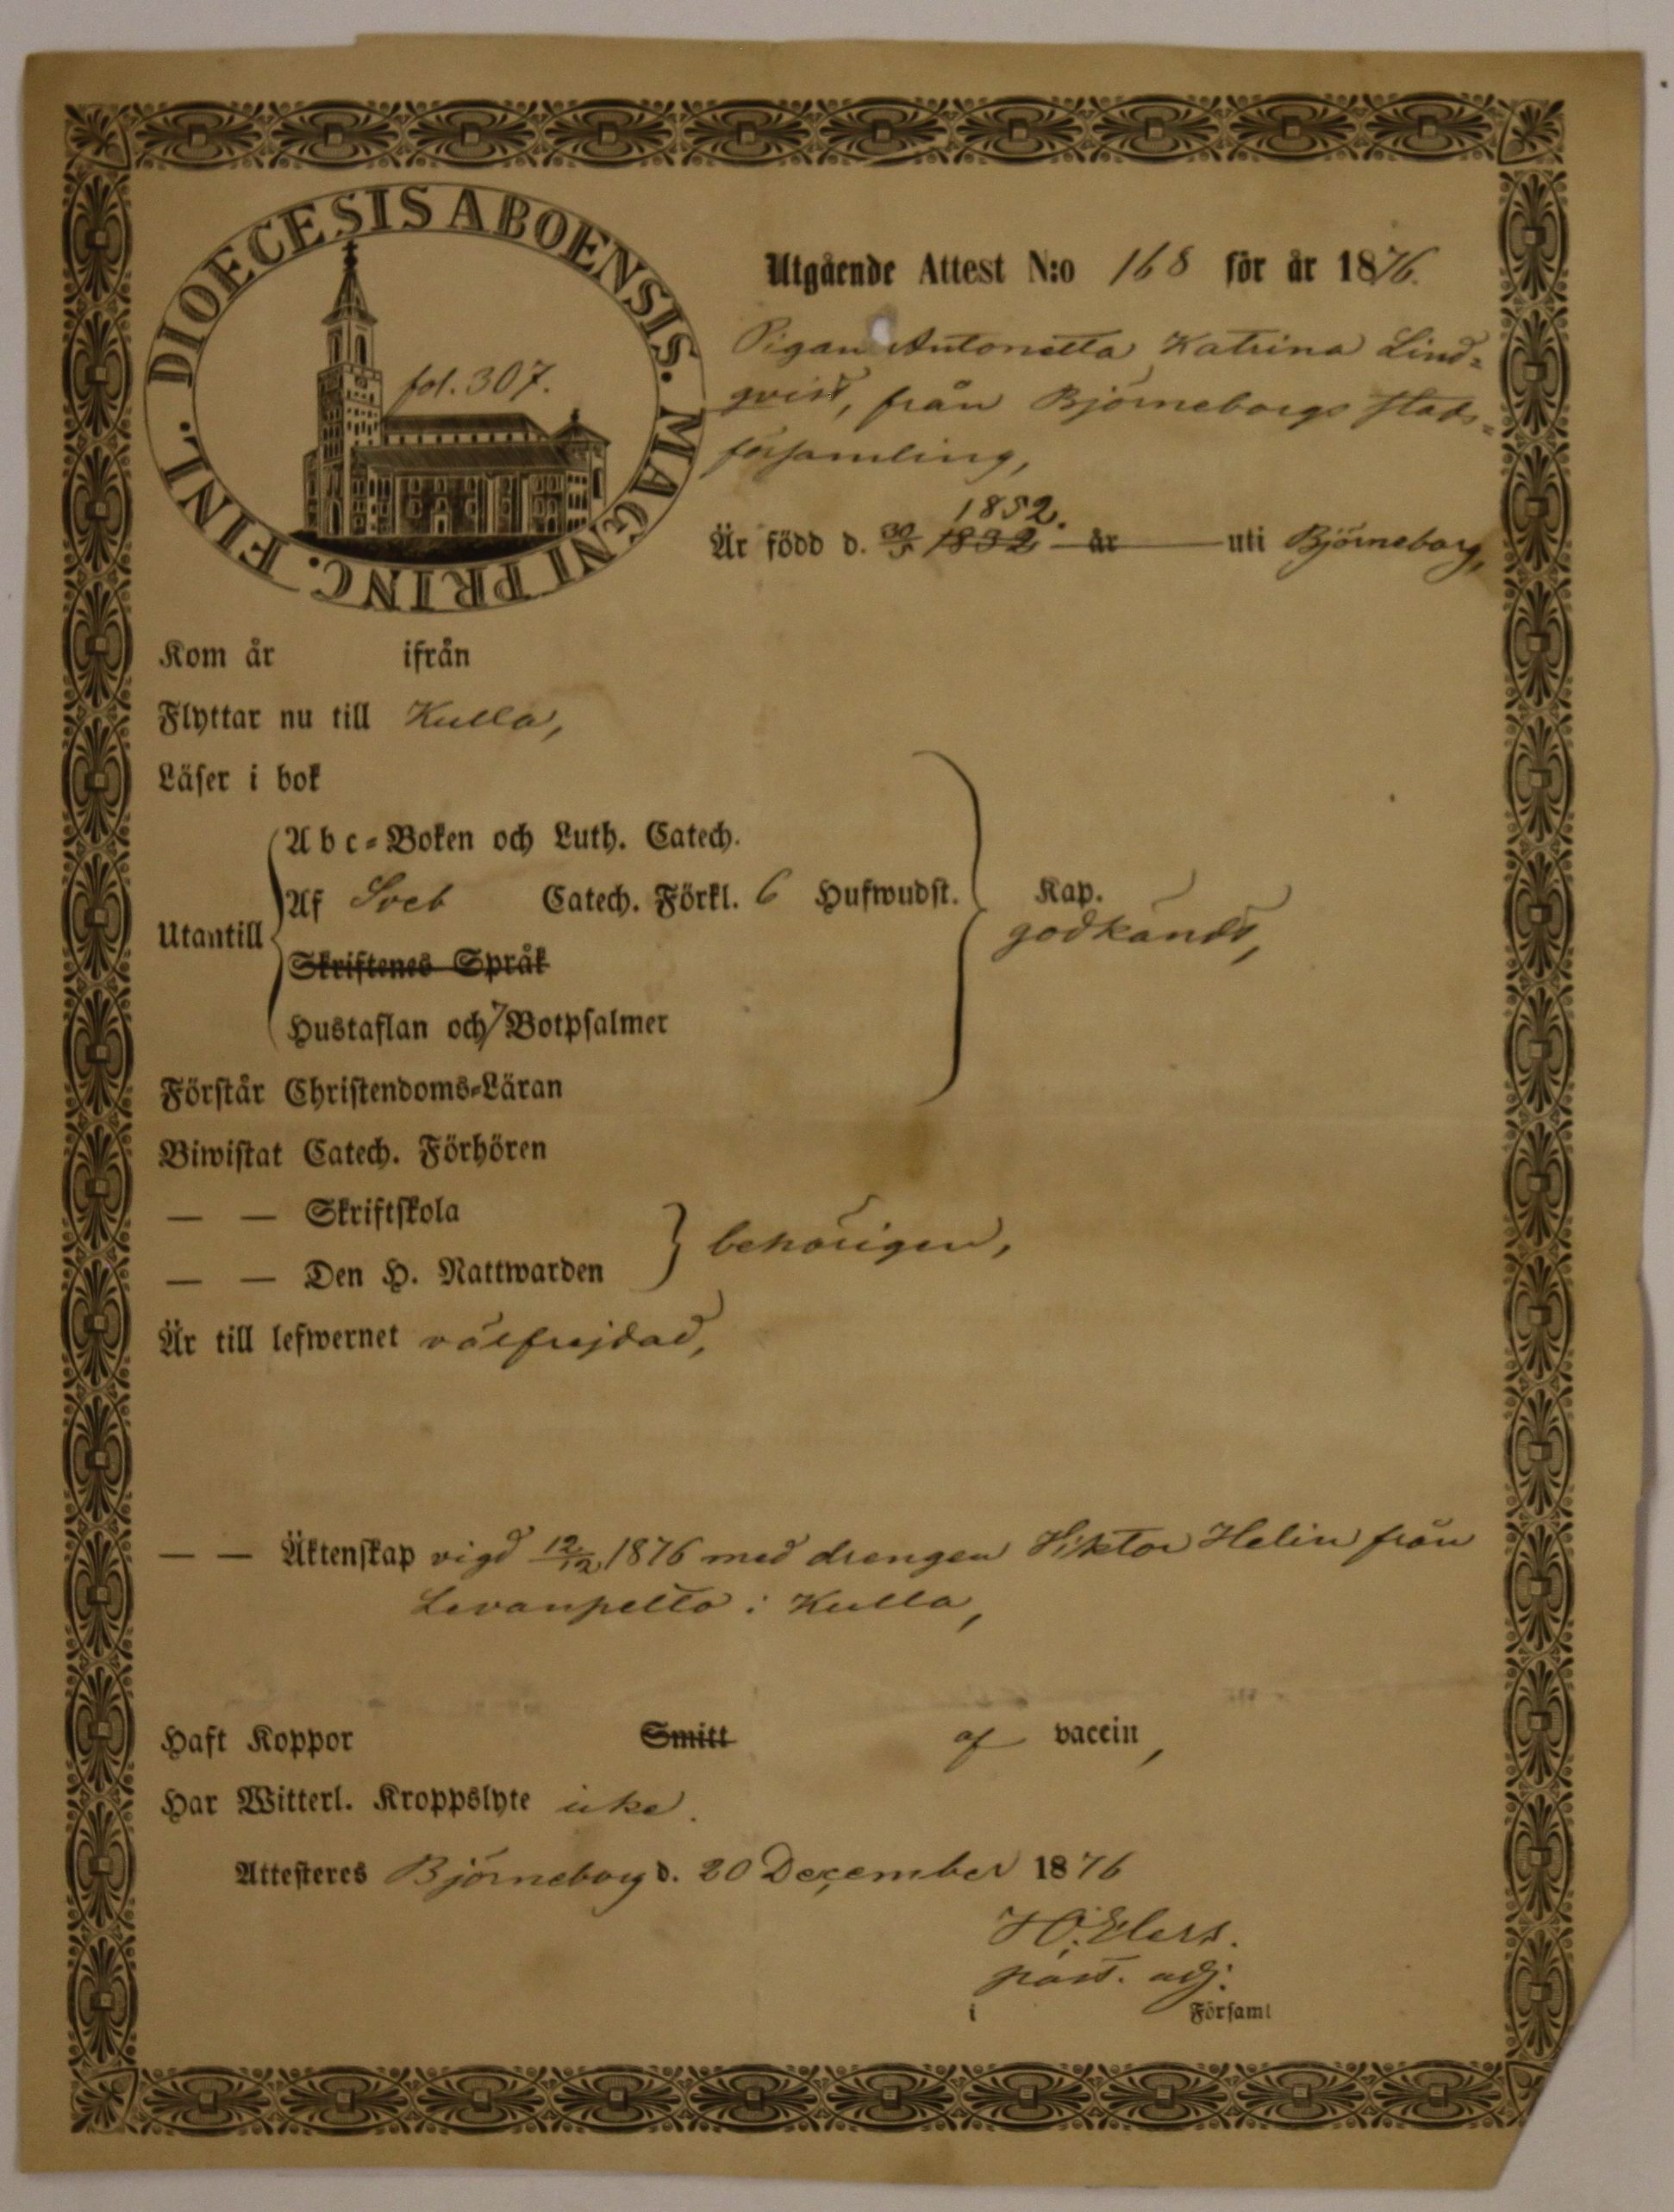 DIOECESIS ABOENSIS. MAGNI PRINC. FINL.
fol. 307.
Utgående Attest N:o 168 för år 1876.
Pigan Antonetta Katrina Lind=
qvist, från Björneborgs stads=
församling,
1852.
Är född d. 30/5 1832 år uti Björneborg,
Kom år ifrån
Flyttar nu till Kulla,
Läser i bok
Abc=Boken och Luth. Catech.
Af Sveb Catech. Förkl. 6 Hufwudst. Kap.
Utantill godkändt,
Skriftenes Språk
Hustaflan och 7 Botpsalmer
Förstår Christendoms=Läran
Biwistat Catech. Förhören
— — Skriftskola
behörigen,
— — Den H. Nattwarden
Är till lefwernet välfrejdad,
— — Äktenskap vigd 12/12 1876 med drengen Viktor Helin från
Levanpelto i Kulla,
Haft Koppor Smitt af vaccin,
Har Witterl. Kroppslyte icke.
Attesteres Björneborg d. 20 December 1876
past. adj.
i Församl